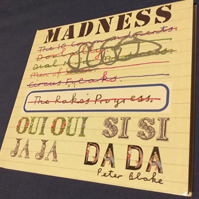 MADNESS
The
Dial
Men
Circus Freaks
The Rake's Progress
OUI OUI SI SI
JA JA DA DA
Peter Blake